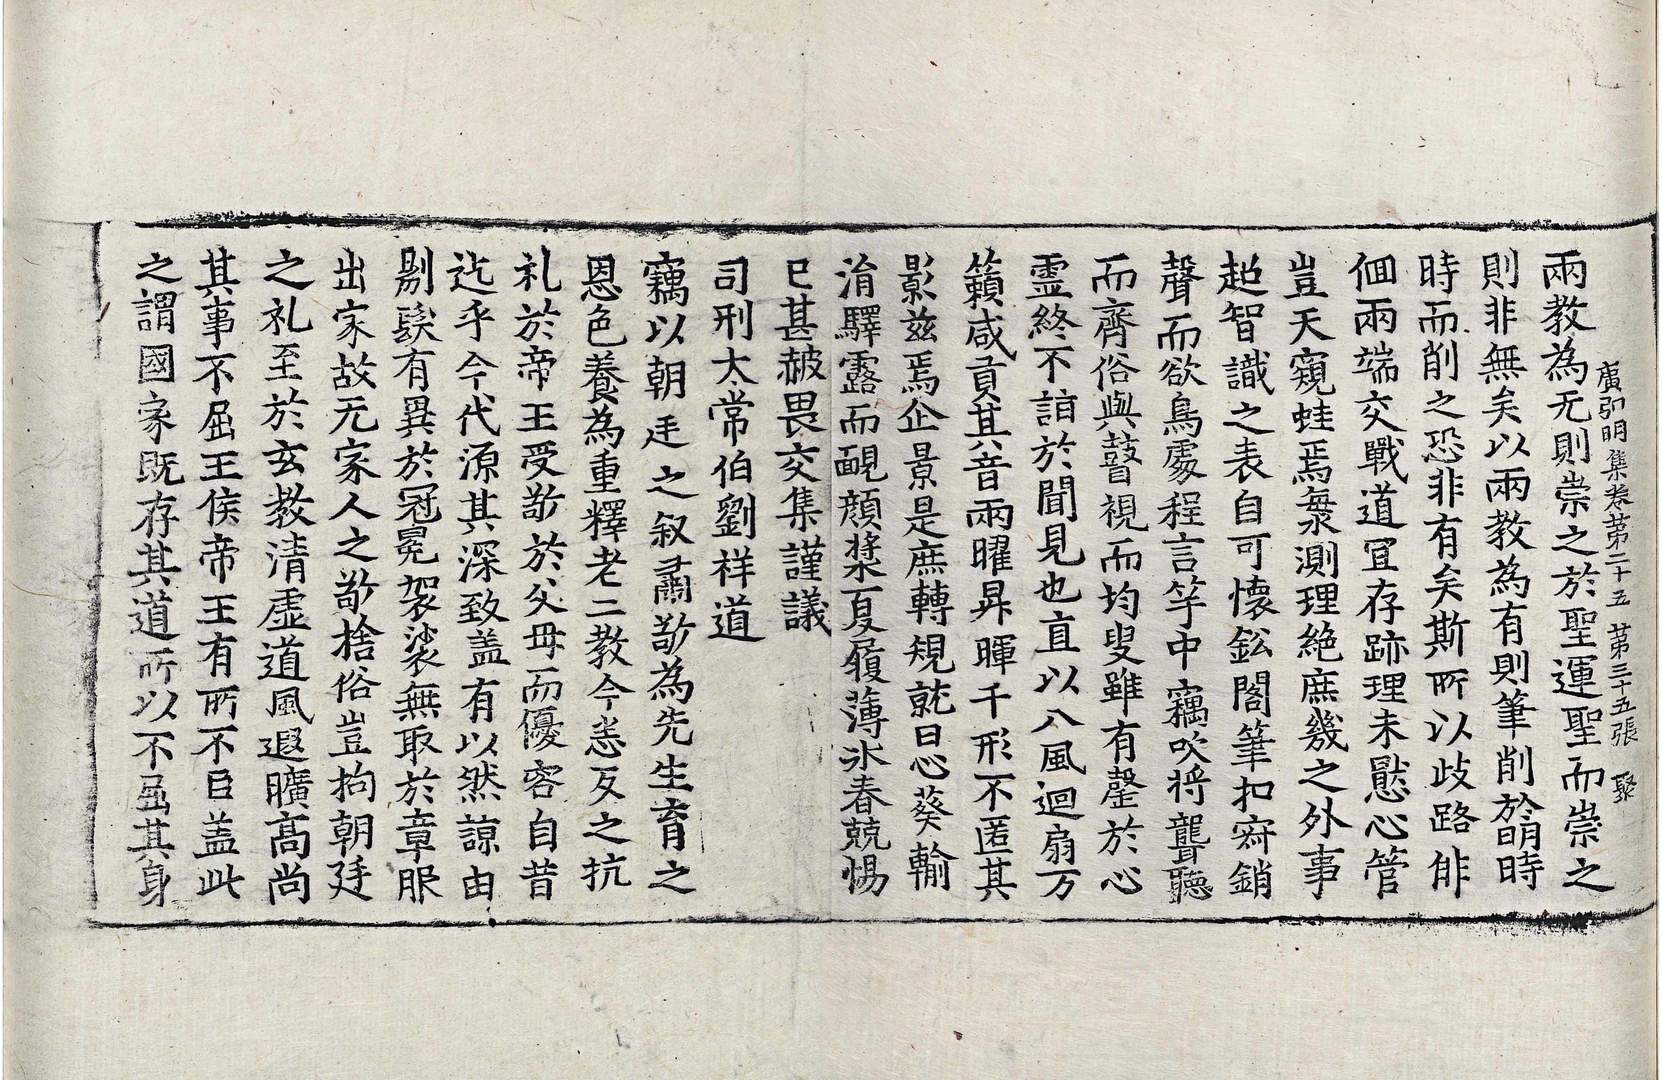 兩教為无則崇之於聖運聖而崇之
廣弘明集卷第二十五 第三十五張 聚
則非無矣以兩教為有則筆削於明時
時而削之恐非有矣斯所以歧路俳
佪兩端交戰道冝存跡理未懕心管
豈天窺蛙焉海測理絕庶幾之外事
超智識之表自可懷鈆閣筆扣寂銷
聲而欲鳥處程言竽中竊吹將聾聽
而齊俗與瞽視而均叟雖有罄於心
霊終不詣於聞見也直以八風迴扇万
籟咸貢其音兩曜昇暉千形不匿其
影兹焉企景是庶轉規就日心葵輸
渻驛露而靦顏槳夏履薄氷春兢惕
已甚赧畏交集謹議
司刑太常伯劉祥道
竊以朝廷之叙肅敬為先生育之
恩色養為重釋老二教今悉反之抗
礼於帝王受敬於父母而優容自昔
迄乎今代源其深致盖有以然諒由
剔髮有異於冠冕袈裟無取於章服
出家故无家人之敬捨俗豈拘朝廷
之礼至於玄教清虚道風遐曠髙尚
其事不屈王侯帝王有所不臣盖此
之謂國家既存其道所以不屈其身